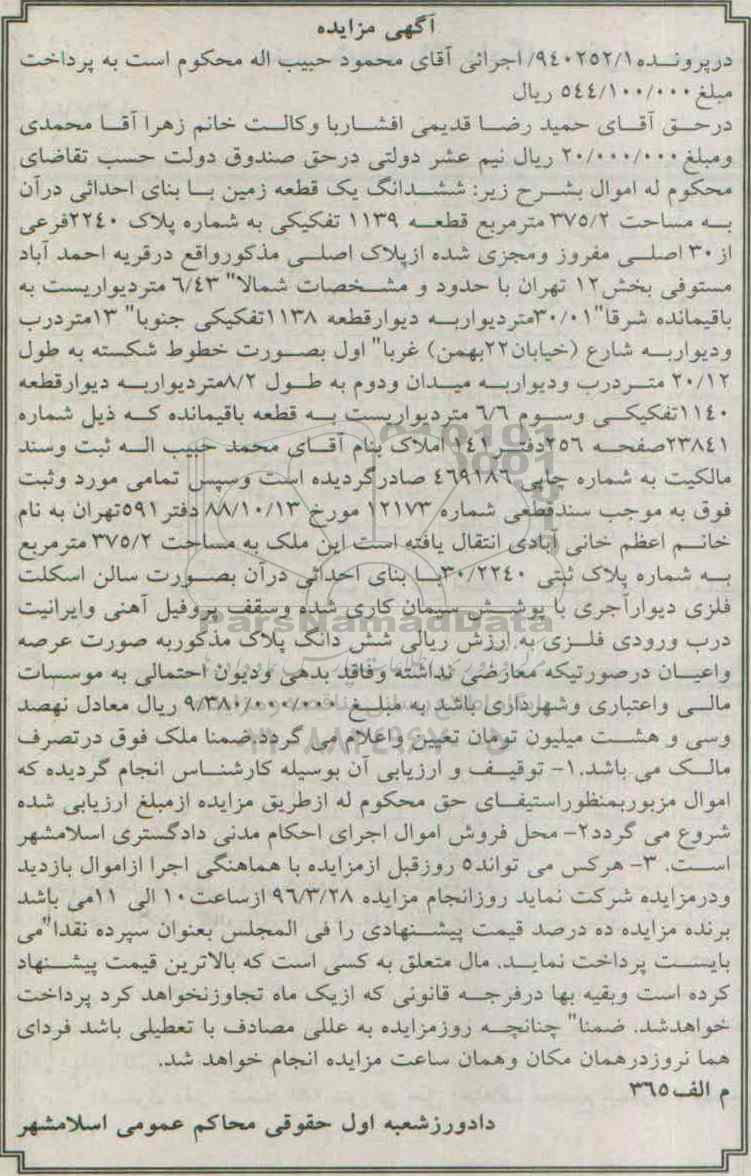 آگهی مزایده
درپرونده ۹٤۰۲٥۲/۱/ اجرائی آقای محمود حبیب اله محکوم است به پرداخت
مبلغ ٥٤٤/۱۰۰/۰۰۰ ریال
درحق آقای حمید رضا قدیمی افشاربا وکالت خانم زهرا آقا محمدی
ومبلغ ۲۰/۰۰۰/۰۰۰ ریال نیم عشر دولتی درحق صندوق دولت حسب تقاضای
محکوم له اموال بشرح زیر: ششدانگ یک قطعه زمین با بنای احداثی درآن
به مساحت ۳۷٥/۲ مترمربع قطعه ۱۱۳۹ تفکیکی به شماره پلاک ۲۲٤۰فرعی
از ۳۰ اصلی مفروز ومجزی شده ازپلاک اصلی مذکورواقع درقریه احمد آباد
مستوفی بخش۱۲ تهران با حدود و مشخصات شمالا" ٦/٤۳ متردیواریست به
باقیمانده شرقا"۳۰/۰۱متردیواربه دیوارقطعه ۱۱۳۸تفکیکی جنوبا" ۱۳متردرب
ودیواربه شارع (خیابان۲۲بهمن) غربا" اول بصورت خطوط شکسته به طول
۲۰/۱۲ متردرب ودیواربه میدان ودوم به طول ۸/۲متردیواربه دیوارقطعه
۱۱٤۰تفکیکی وسوم ٦/٦ متردیواریست به قطعه باقیمانده که ذیل شماره
۲۳۸٤۱صفحه ۲٥٦دفتر۱٤۱ املاک بنام آقای محمد حبیب اله ثبت وسند
مالکیت به شماره چاپی ٤٦۹۱۸٦ صادرگردیده است وسپس تمامی مورد وثبت
فوق به موجب سندقطعی شماره ۱۲۱۷۳ مورخ ۸۸/۱۰/۱۳ دفتر ٥۹۱تهران به نام
خانم اعظم خانی آبادی انتقال یافته است این ملک به مساحت ۳۷٥/۲ مترمربع
به شماره پلاک ثبتی ۳۰/۲۲٤۰با بنای احداثی درآن بصورت سالن اسکلت
فلزی دیوارآجری با پوشش سیمان کاری شده وسقف پروفیل آهنی وایرانیت
درب ورودی فلزی به ارزش ریالی شش دانگ پلاک مذکوربه صورت عرصه
واعیان درصورتیکه معارضی نداشته وفاقد بدهی ودیون احتمالی به موسسات
مالی واعتباری وشهرداری باشد به مبلغ ۹/۳۸۰/۰۰۰/۰۰۰ ریال معادل نهصد
وسی و هشت میلیون تومان تعیین واعلام می گردد.ضمنا ملک فوق درتصرف
مالک می باشد.۱- توقیف و ارزیابی آن بوسیله کارشناس انجام گردیده که
اموال مزبوربمنظوراستیفای حق محکوم له ازطریق مزایده ازمبلغ ارزیابی شده
شروع می گردد۲- محل فروش اموال اجرای احکام مدنی دادگستری اسلامشهر
است. ۳- هرکس می تواند٥ روزقبل ازمزایده با هماهنگی اجرا ازاموال بازدید
ودرمزایده شرکت نماید روزانجام مزایده ۹٦/۳/۲۸ ازساعت۱۰ الی ۱۱می باشد
برنده مزایده ده درصد قیمت پیشنهادی را فی المجلس بعنوان سپرده نقدا"می
بایست پرداخت نماید. مال متعلق به کسی است که بالاترین قیمت پیشنهاد
کرده است وبقیه بها درفرجه قانونی که ازیک ماه تجاوزنخواهد کرد پرداخت
خواهدشد. ضمنا" چنانچه روزمزایده به عللی مصادف با تعطیلی باشد فردای
هما نروزدرهمان مکان وهمان ساعت مزایده انجام خواهد شد.
م الف۳٦٥
دادورزشعبه اول حقوقی محاکم عمومی اسلامشهر
ParsNamadData